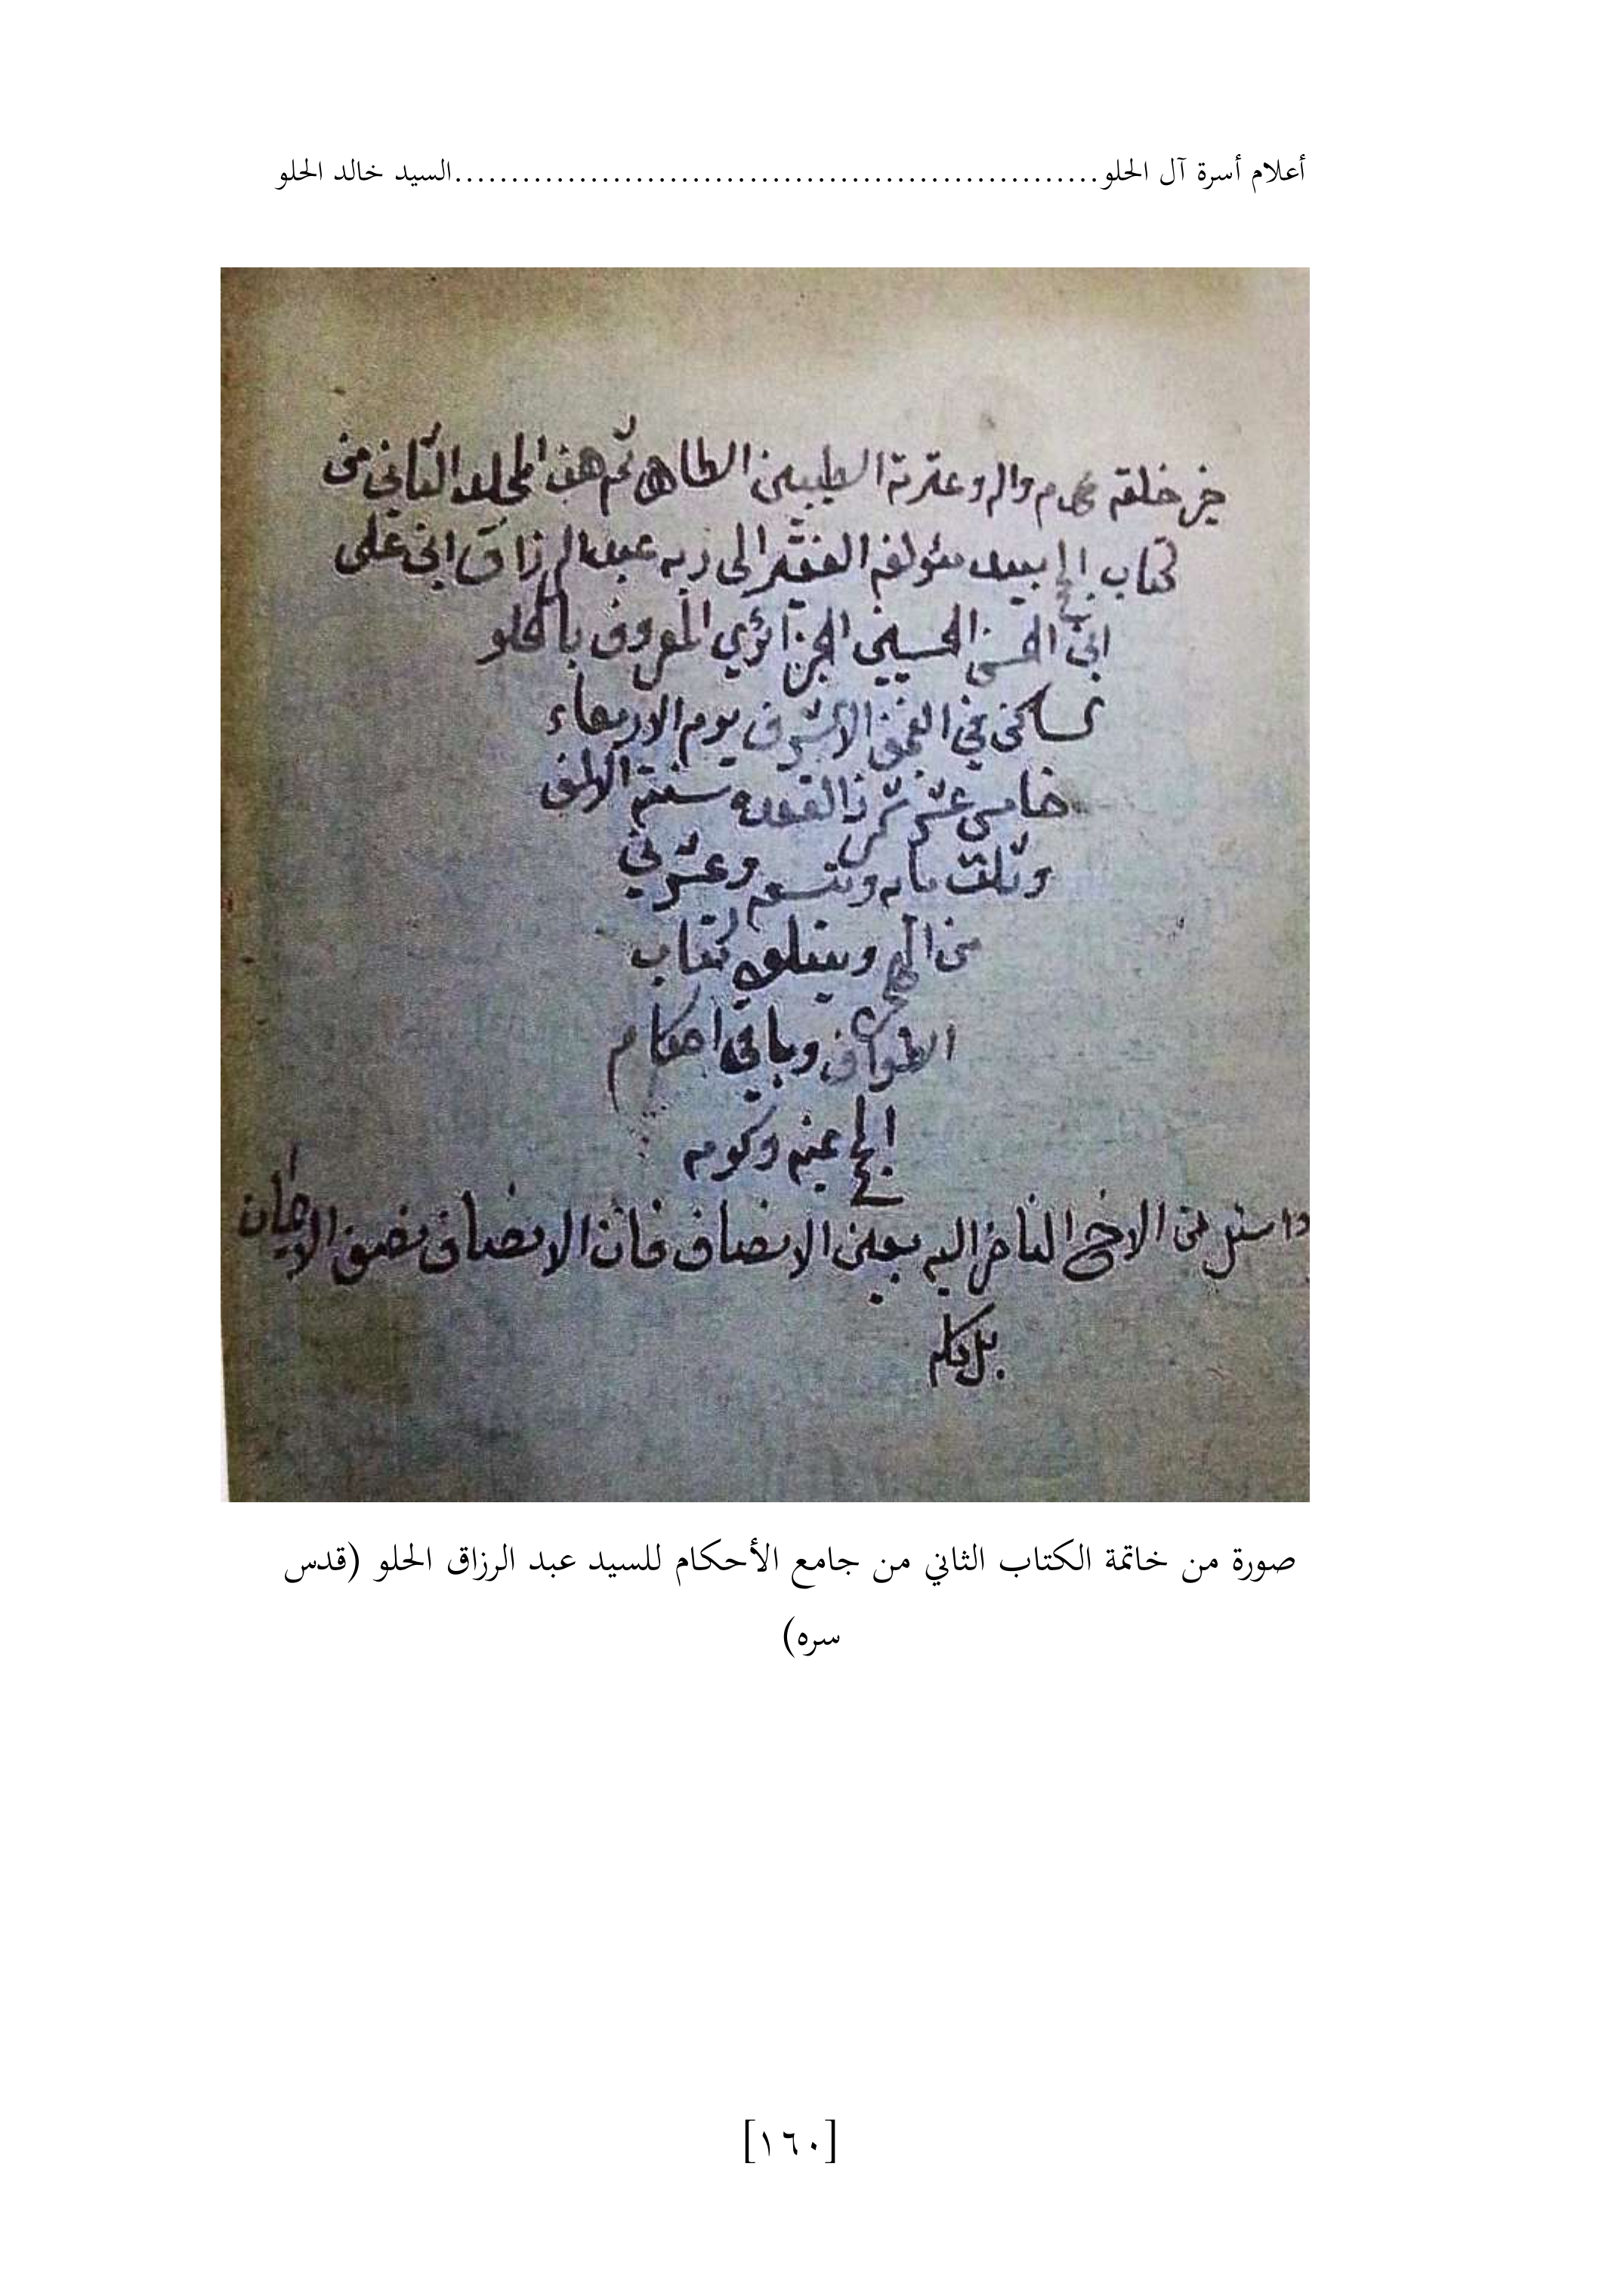 أعلام أسرة آل الحلو..........................................................السيد خالد الحلو
خير خلقه محمد وآله وعترته الطيبين الطاهر تم هذا المجلد الثاني من
كتاب الحج بيد مؤلفه الفقير الى ربه عبد الرزاق ابن على
ابن الحسن الحسيني الجزائري المعروف بالحلو
ساكن في الاشرف يوم الاربعاء
خامس عشر ذالقعده سنة الالف
وثلث مايه وتسعه وعشرين
من الهجره ويتلوه كتاب
الطواف وباقي احكام
الحج
من الاخ الناظر اليه بعين الانصاف فان الانصاف نصف الايمان
بل كله
صورة من خاتمة الكتاب الثاني من جامع الأحكام للسيد عبد الرزاق الحلو (قدس
سره)
[١٦٠]